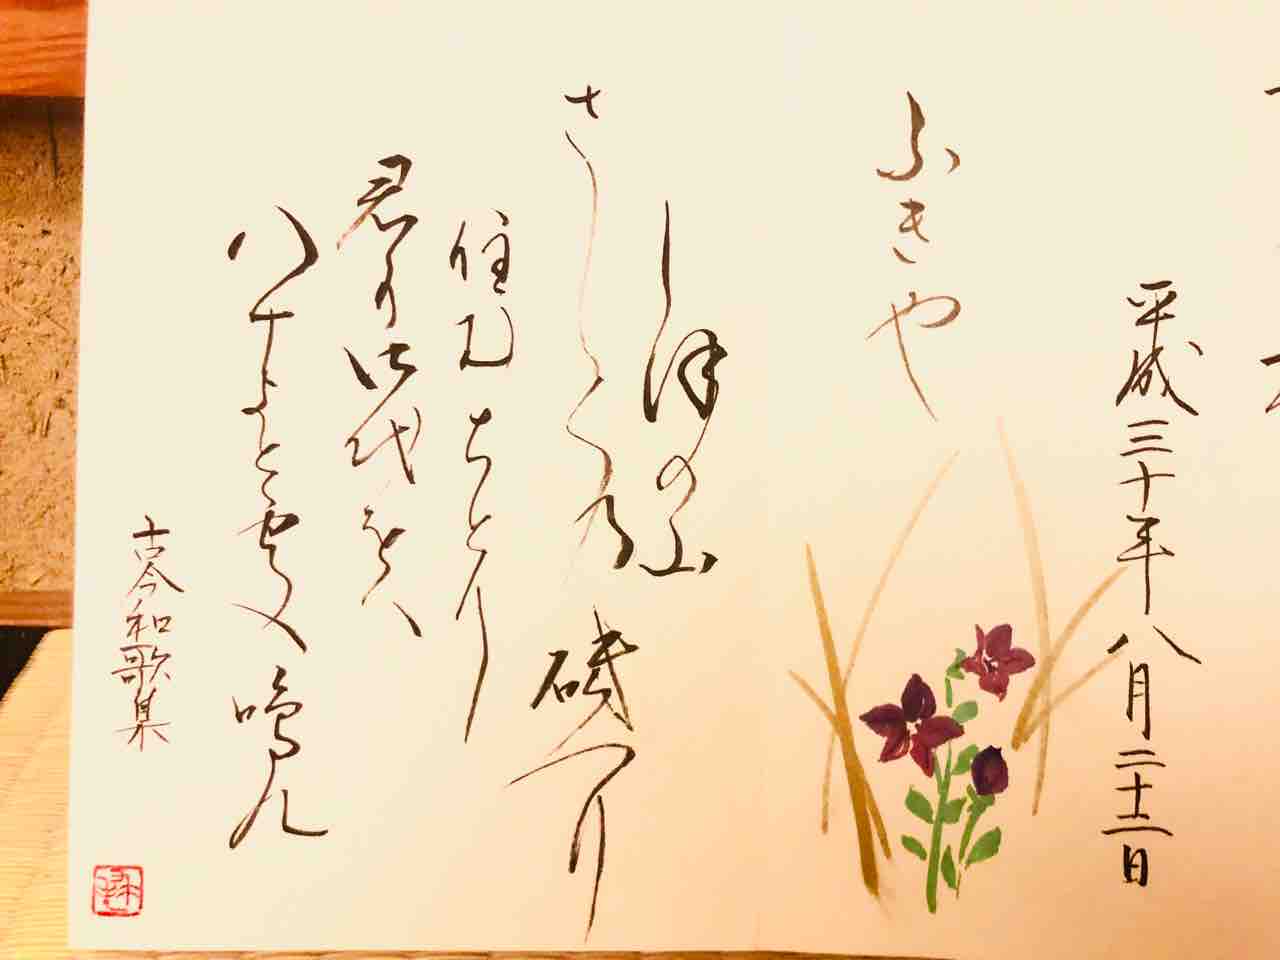 平成三十年八月二十二日
ふきや
しほの山
さしての磯に
住むちとり
君か御代をは
八千よとそ鳴く
古今和歌集